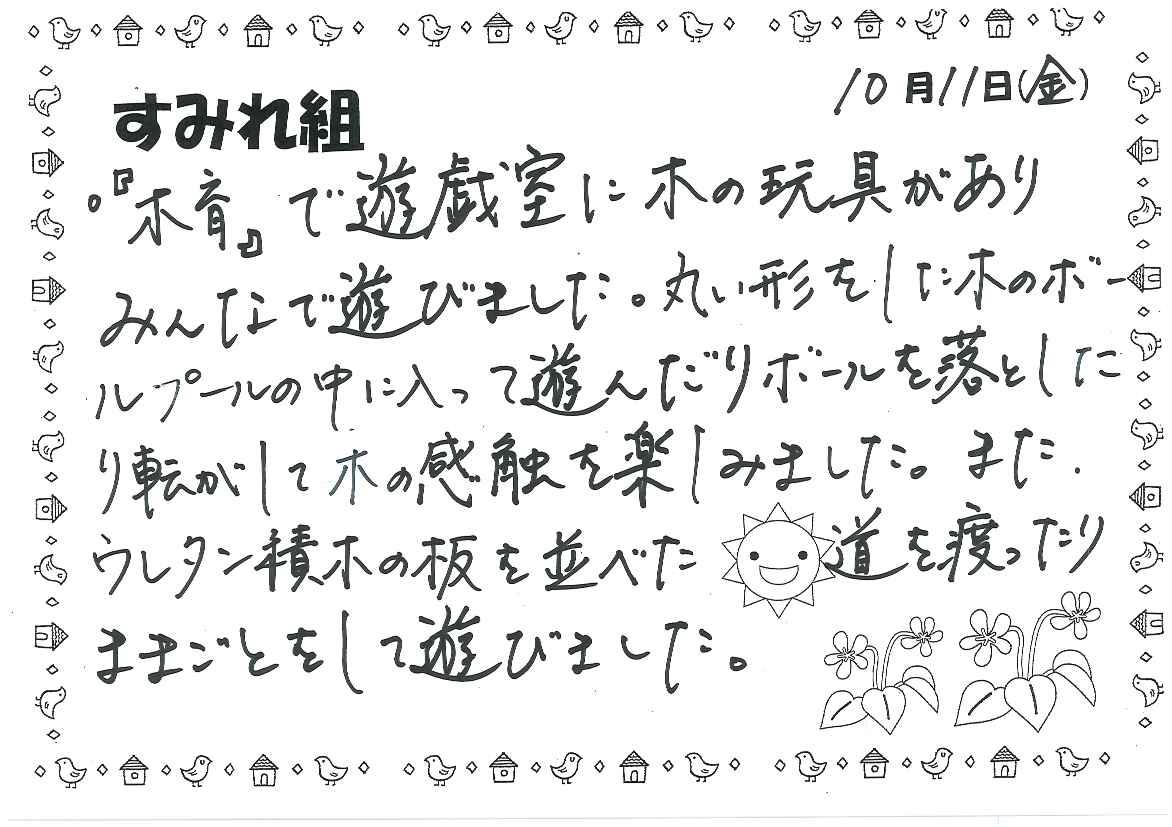 10月11日(金)
すみれ組
。『木育』で遊戯室に木の玩具があり
みんなで遊びました。丸い形をした木のボー
ルプールの中に入って遊んだりボールを落とした
り転がして木の感触を楽しみました。また、
ウレタン積木の板を並べた 道を渡ったり
ままごとをして遊びました。